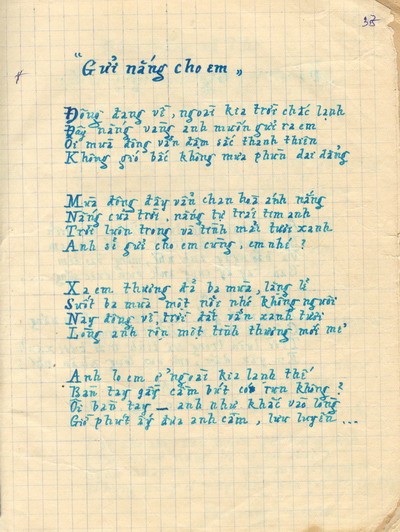 37
#
"Gửi nắng cho em"
Đông đang về, ngoài kia trời chắc lạnh
Đây nắng vàng anh muốn gửi ra em
Ôi mùa đông vẫn đậm sắc thanh thiên
Không gió bấc không mưa phùn dai dẳng
Mùa đông đây vẫn chan hoà ánh nắng
Nắng của trời, nắng tự trái tim anh
Trời luôn trong và tình mãi tươi xanh
Anh sẽ gửi cho em cùng, em nhé ?
Xa em thương đã ba mùa, lặng lẽ
Suốt ba mùa một nỗi nhớ không nguôi
Nay đông về, trời đất vẫn xanh tươi
Lòng anh rộn một tình thương mới mẻ
Anh lo em ở ngoài kia lạnh thế
Bàn tay gầy cầm bút có run không ?
Ôi bàn tay _ anh như khắc vào lòng
Giờ phút ấy đưa anh cầm, lưu luyến ...